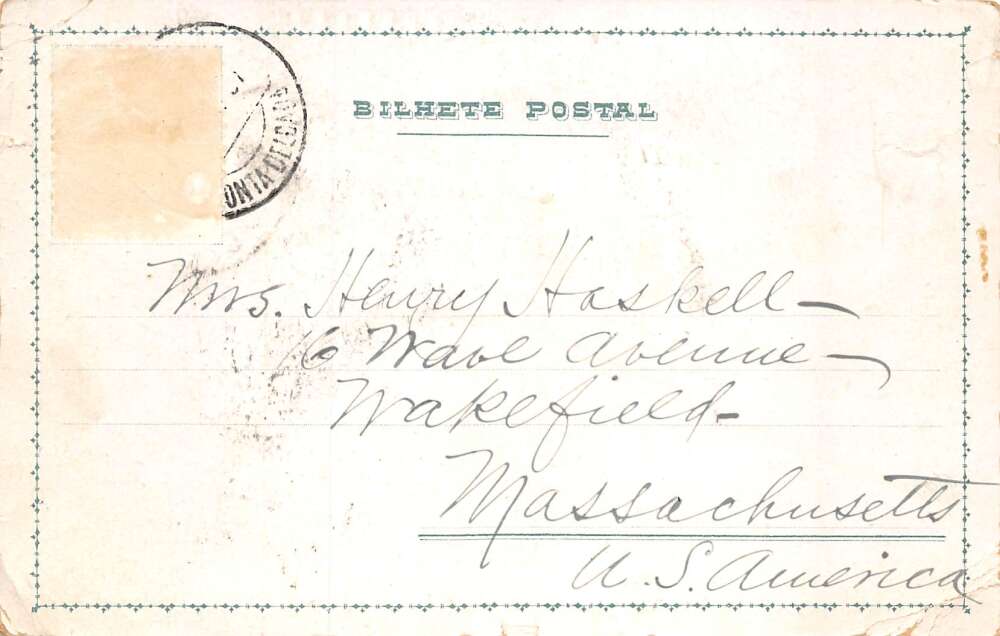 BILHETE POSTAL
PONTA DELGADA
Mrs. Henry Haskell
16 Wave Avenue
Wakefield
Massachusetts
U. S. America